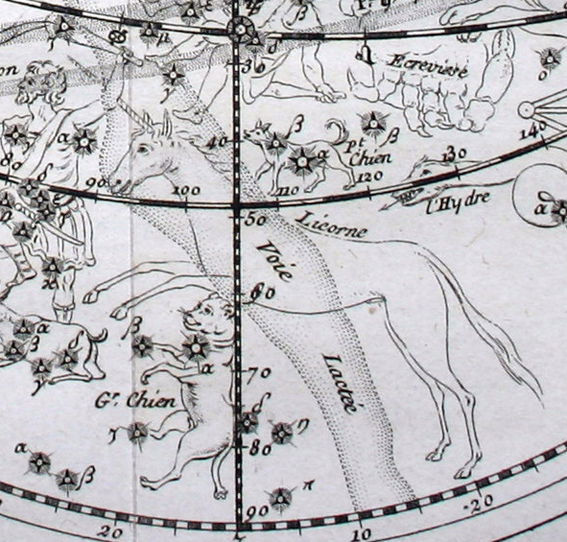 β
μ
δ
γ
30
Ecrevisse
δ
140
α
δ
40
β
pt
Chien
β
α
130
90
100
110
120
l'Hydre
α
50
Licorne
Voie
60
α
β
γ
δ
β
α
70
Lactée
Gr. Chien
γ
δ
η
80
α
β
π
90
20
10
-20